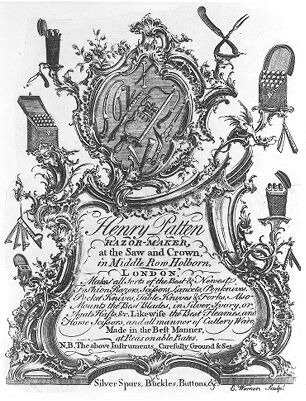 Henry Patten
RAZOR-MAKER,
at the Saw and Crown,
in Middle Row Holborn,
LONDON,
Makes all Sorts of the Best & Newest
Fashion Razors, Scissors, Lancets, Penknives,
Pocket Knives, Table Knives & Forks, Also
Mounts the Best Blades, in Silver, Ivory, or
Agate Hafts, &c. Likewise the Best Fleames, and
Horse Scissors, and all manner of Cutlery Ware
Made in the Best Manner,
at Reasonable Rates.
N.B. The above Instruments Carefully Ground & Set.
Silver Spurs, Buckles, Buttons, &c.
E. Warner Sculp.